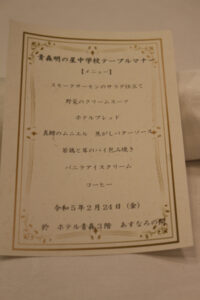 青森明の星中学校テーブルマナー
【メニュー】
スモークサーモンのサラダ仕立て
野菜のクリームスープ
ホテルブレッド
真鯛のムニエル 焦がしバターソース
若鶏と茸のパイ包み焼き
バニラアイスクリーム
コーヒー
令和5年2月24日(金)
於 ホテル青森3階 あすなろの間